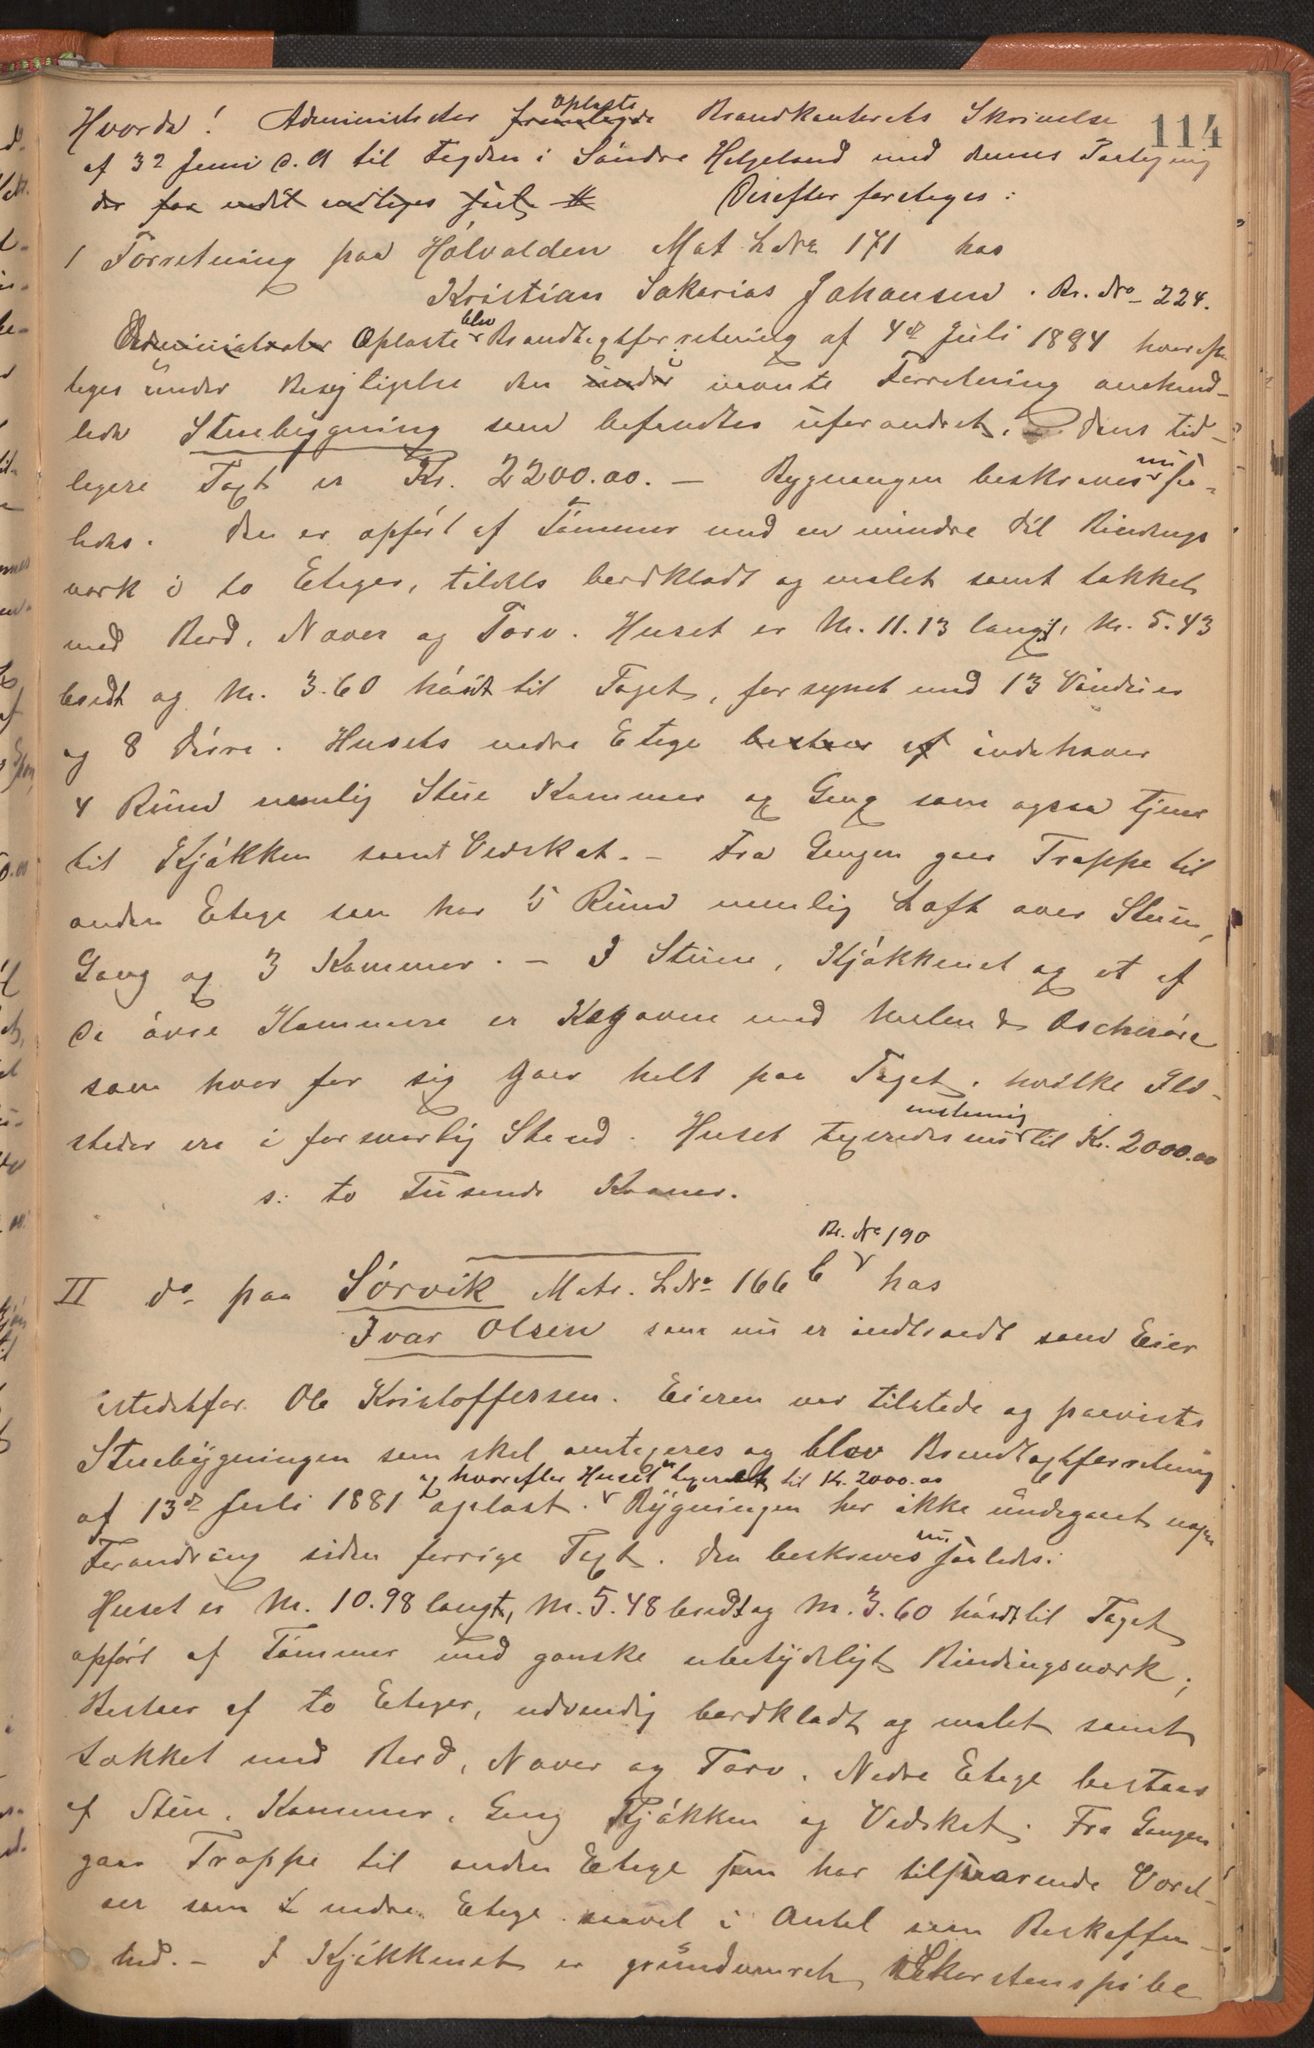 114
Hvorda! Administrator fremlagde oplæste Brandkontorets Skrivelse
af 3die Juni d. A til Fogden i Söndre Helgeland med dennes Paategning
Derefter foretoges:
1 Forretning paa Holvalden Mat. L.No 171 hos
Kristian Sakarias Johansen. Br. No 224.
Administrator Oplæste blev Brandtaxtforretning af 4de Juli 1884 hvorefter
toges under Besigtigelse den under nævnte Forretning anmeld-
ledede Stuebygning som befandtes uforandret. Dens tid-
ligere Taxt er Kr. 2200.00. — Bygningen beskreves nu saa-
ledes. Den er opfört af Tömmer med en mindre Del Bindings
værk i to Etager, tildels bordklædt og malet samt tækket
med Bord, Næver og Torv. Huset er M. 11.13 langt, M. 5.43
bredt og M. 3.60 höit til Taget, forsynet med 13 Vinduer
og 8 Döre. Husets nedre Etage bestaar af indehaver
4 Rum nemlig Stue Kammer og Gang som ogsaa tjener
til Kjökken samt Vedskot. — Fra Gangen gaar Trappe til
anden Etage som har 5 Rum nemlig Loft over Stuen,
Gang og 3 Kammer. — I Stuen, Kjökkenet og et af
de övre Kammere er Kogovne med Rör
som hver for sig gaar helt paa Taget. hvilke Ild-
steder ere i forsvarlig Stand. Huset taxeredes nu til Kr. 2000.00
s: to Tusende Kroner.
Br. No 190
II do paa Sörvik Matr. L.No 166 b hos
Ivar Olsen som nu er indtraadt som Eier
istedetfor Ole Kristoffersen. Eieren var tilstede og paaviste
Stuebygningen som skal omtaxeres og blev Brandtaxtforretning
og hvorefter Huset er taxeret til Kr. 2000.00
af 13de Juli 1881 oplæst. Bygningen har ikke undergaaet nogen
Forandring siden forrige Taxt. Den beskreves nu saaledes:
Huset er M. 10.98 langt, M. 5.48 bredt og M. 3.60 höit til Taget
opfört af Tömmer med ganske ubetydeligt Bindingsværk;
Bestaar af to Etager, udvendig bordklædt og malet samt
tækket med Bord, Næver og Torv. Nedre Etage bestaar
af Stue, Kammer, Gang Kjökken og Vedskot. Fra Gangen
gaar Trappe til anden Etage som har tilsvarende Værel-
ser som i nedre Etage saavel i Antal som Beskaffen-
hed. — I Kjökkenet er grundmuret Skorstenspibe